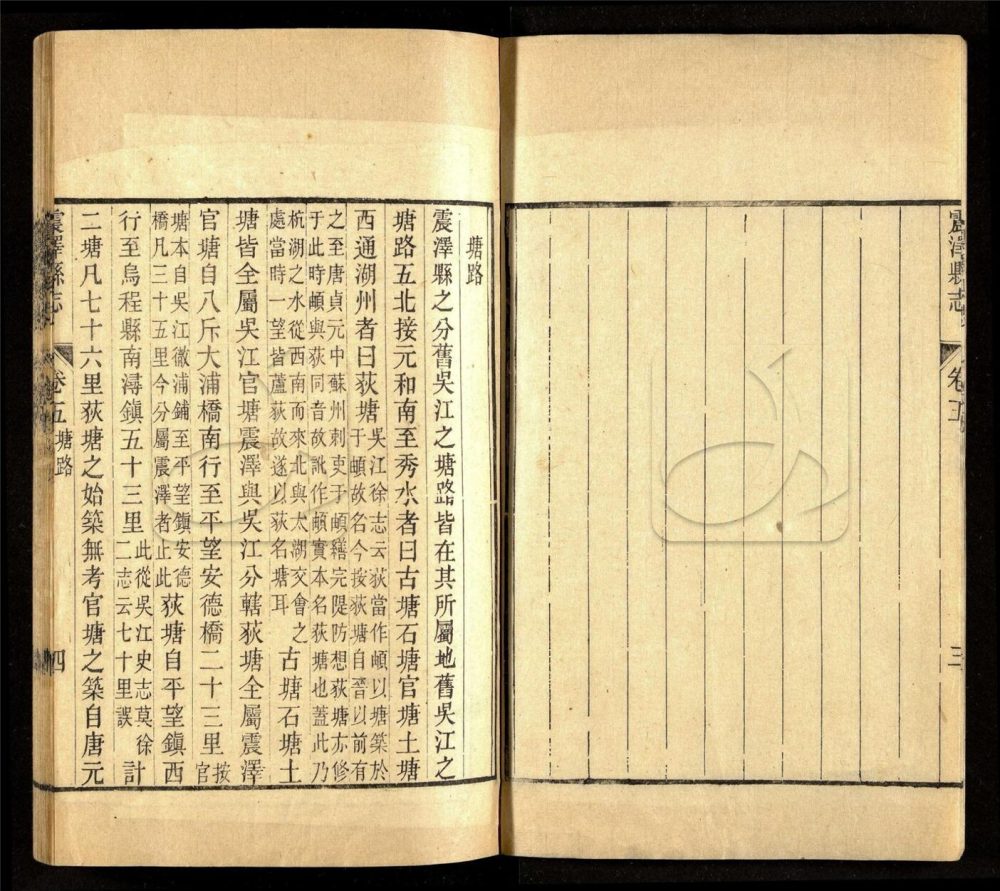 震澤縣志
卷五
三
塘路
震澤縣之分舊吳江之塘路皆在其所屬地舊吳江之
塘路五北接元和南至秀水者曰古塘石塘官塘土塘
西通湖州者曰荻塘
吳江徐志云荻當作頔以塘築於
于頔故名今按荻塘自晉以前有
之至唐貞元中蘇州刺吏于頔繕完隄防想荻塘亦修
于此時頔與荻同音故訛作頔實本名荻塘也蓋此乃
杭湖之水從西南而來北與太湖交會之
處當時一望皆蘆荻故遂以荻名塘耳
古塘石塘土
塘皆全屬吳江官塘震澤與吳江分轄荻塘全屬震澤
官塘自八斥大浦橋南行至平望安德橋二十三里
按
官
塘本自吳江徹浦鋪至平望鎮安德
橋凡三十五里今分屬震澤者止此
荻塘自平望鎮西
行至烏程縣南潯鎮五十三里
此從吳江史志莫徐
二志云七十里誤
計
二塘凡七十六里荻塘之始築無考官塘之築自唐元
震澤縣志
卷五
塘路
四